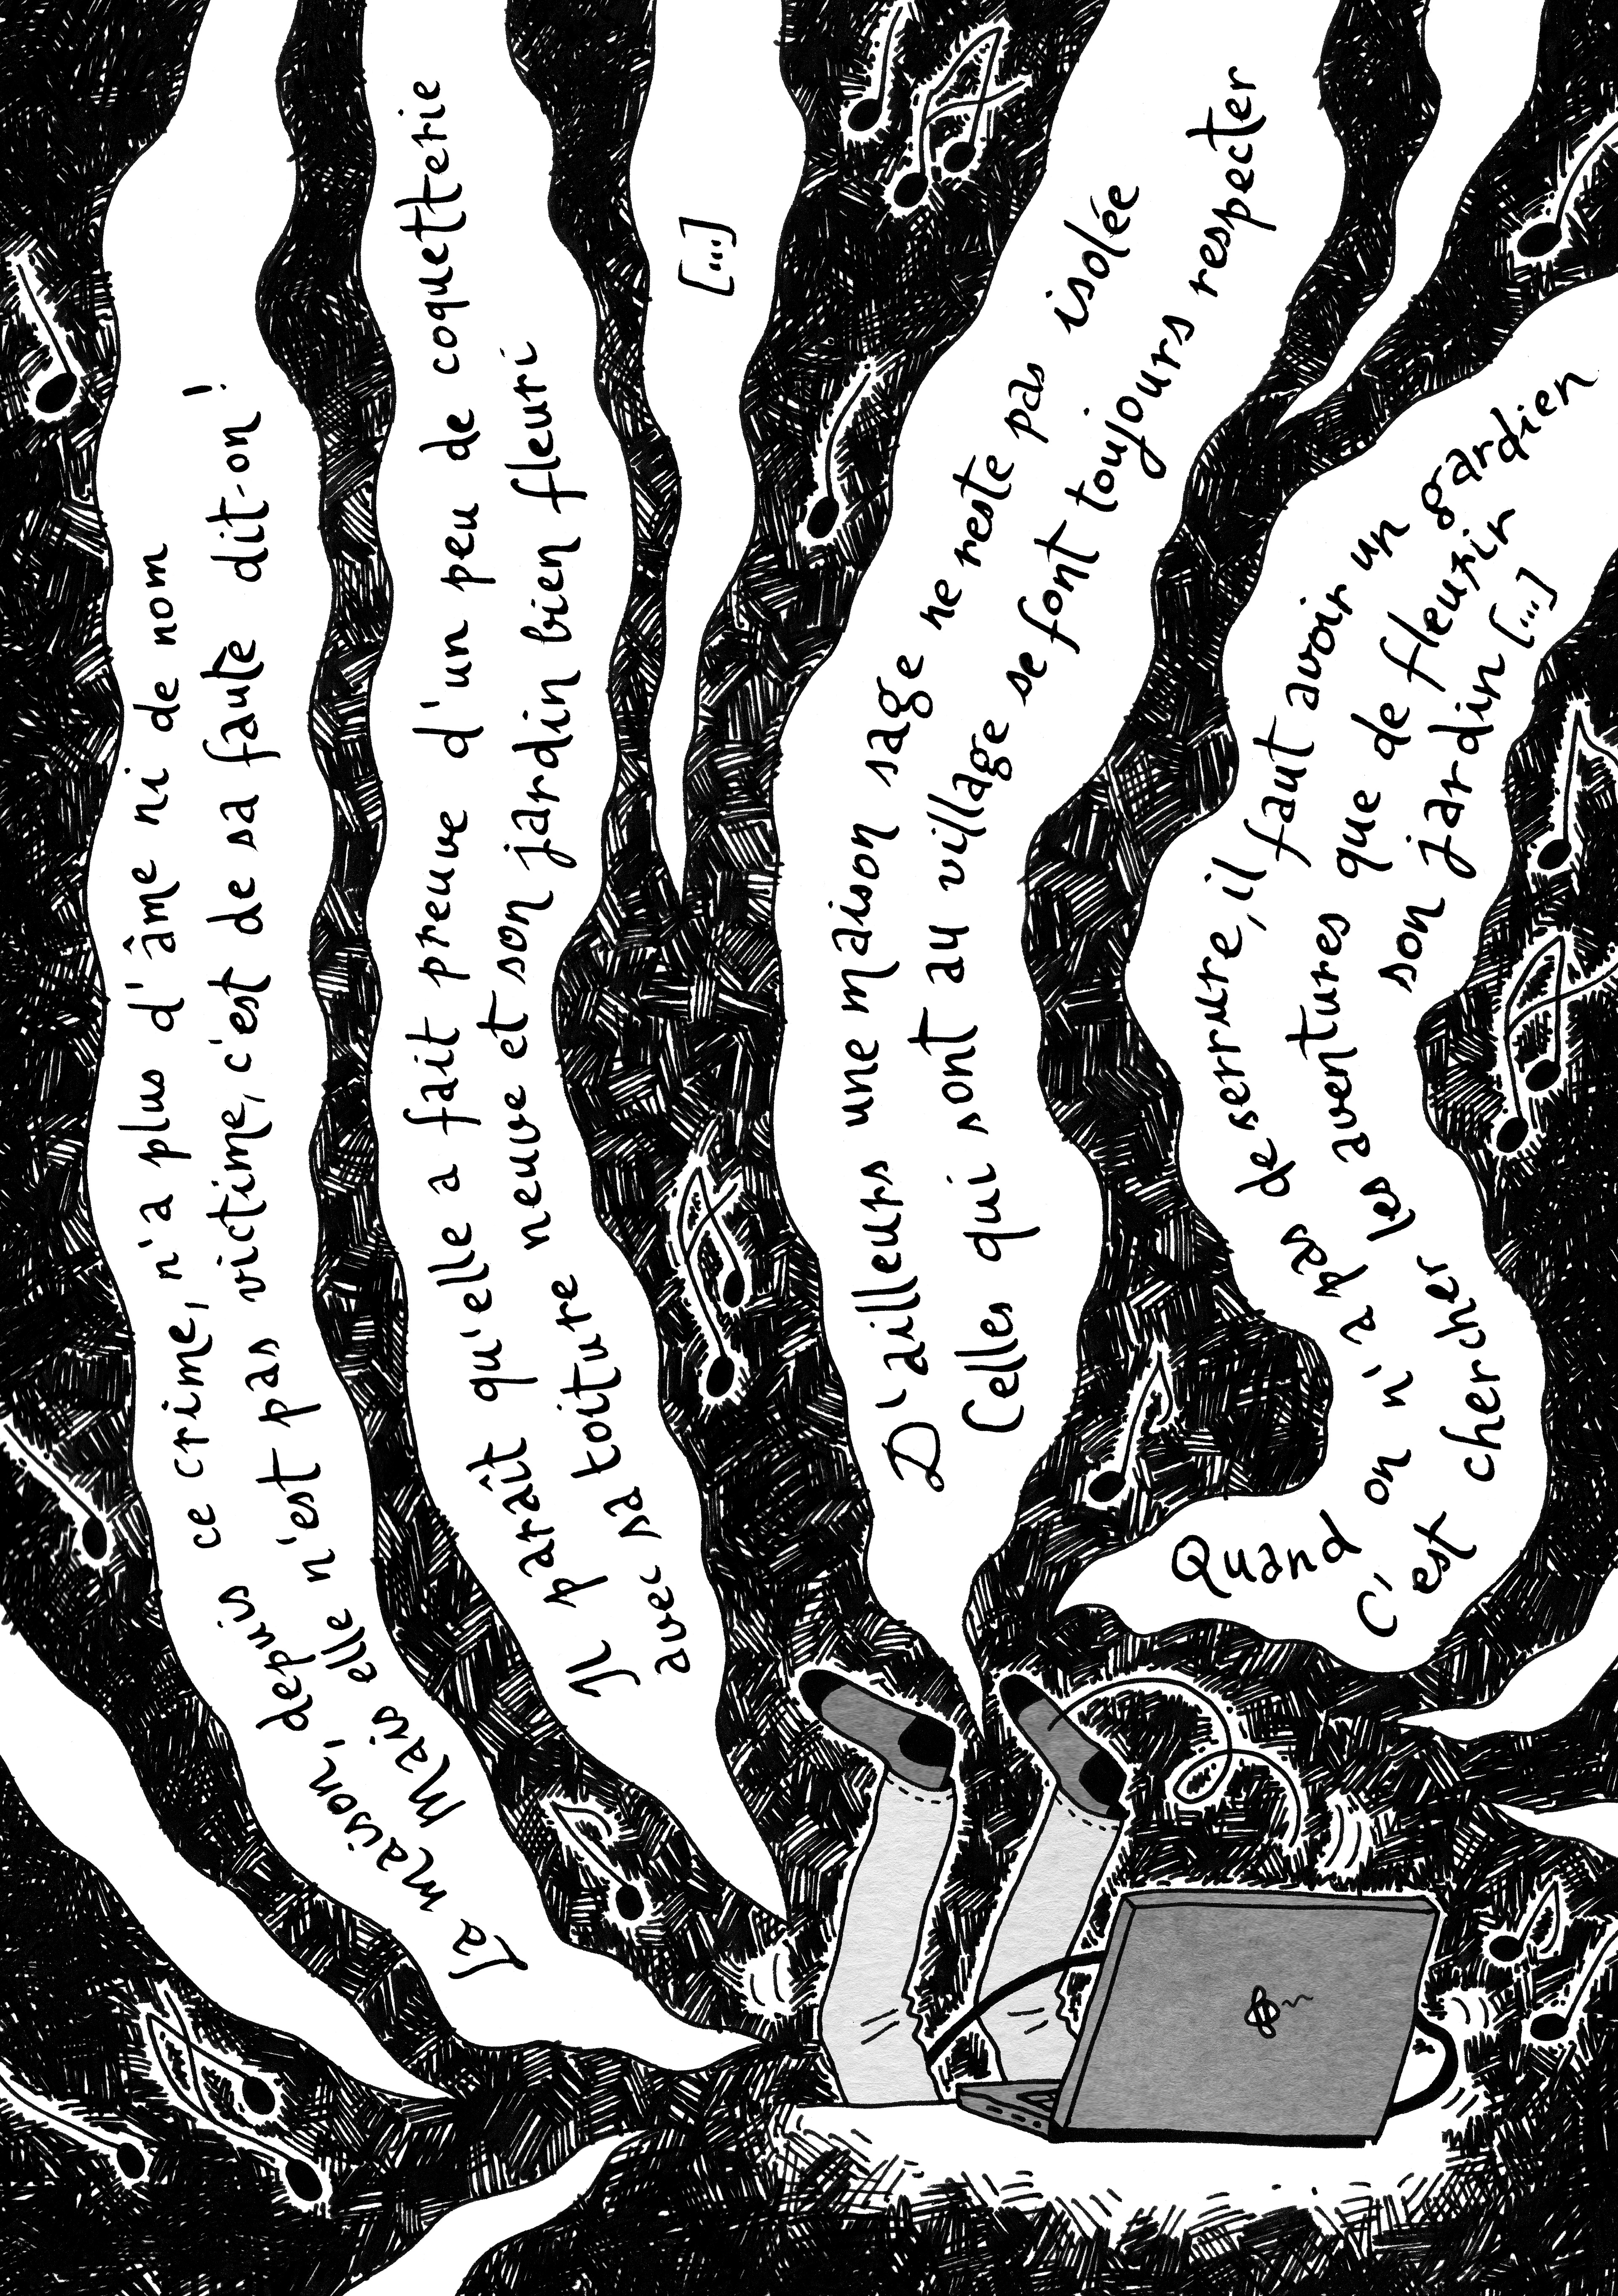 La maison, depuis ce crime, n'a plus d'âme ni de nom
Mais elle n'est pas victime, c'est de sa faute dit-on !
Il paraît qu'elle a fait preuve d'un peu de coquetterie
avec sa toiture neuve et son jardin bien fleuri
[...]
D'ailleurs une maison sage ne reste pas isolée
Celles qui sont au village se font toujours respecter
Quand on n'a pas de serrure, il faut avoir un gardien
C'est chercher les aventures que de fleurir
son jardin [...]